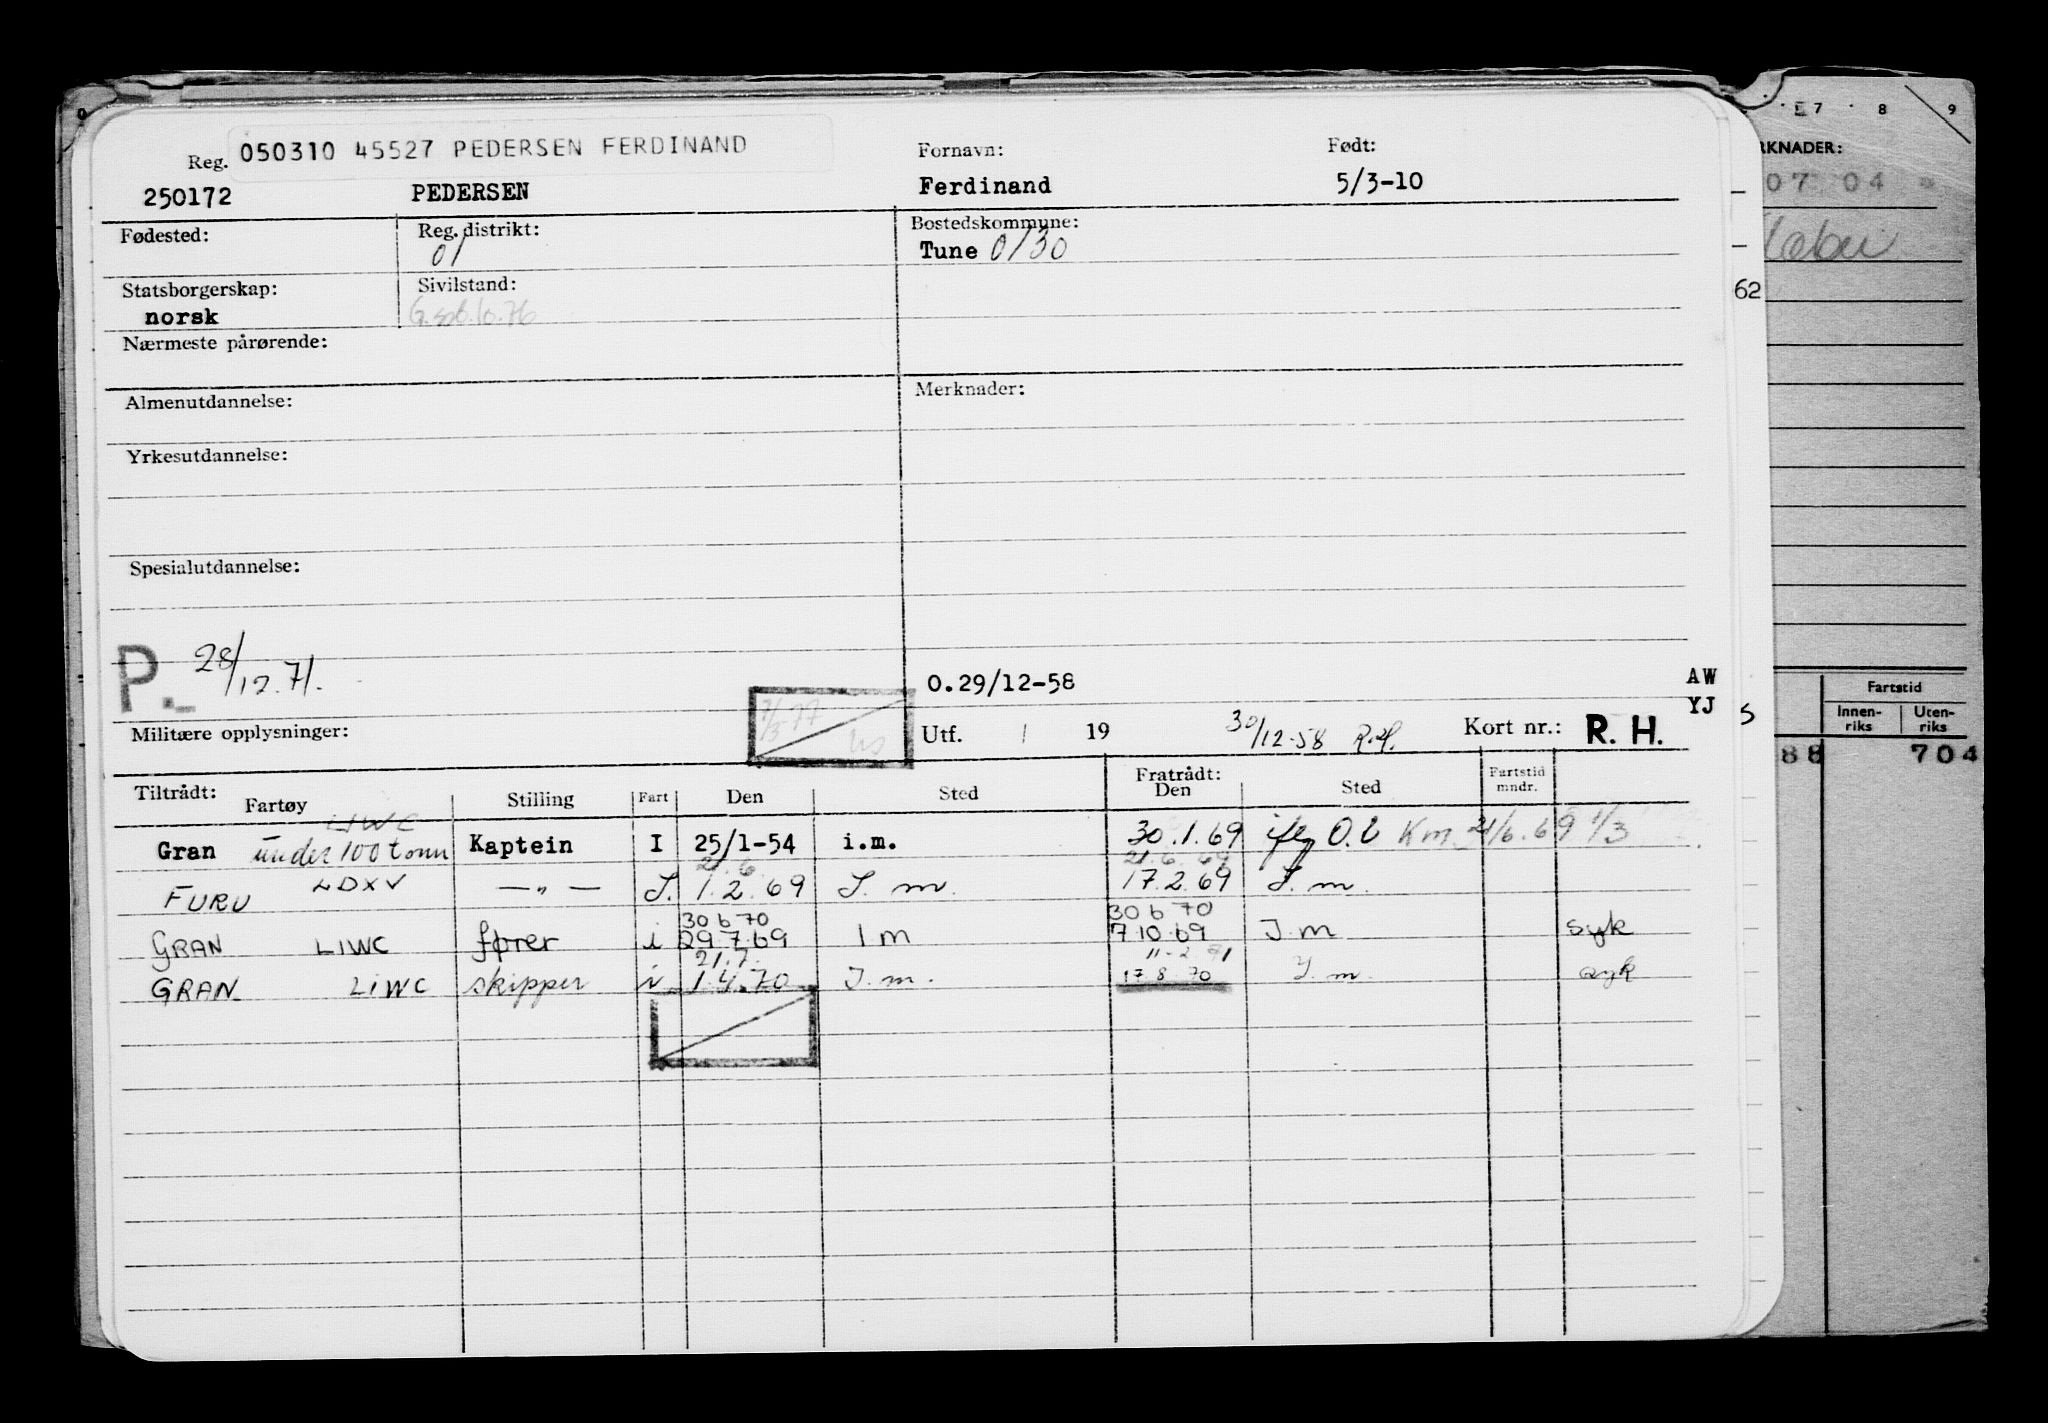 Reg. 050310 45527 PEDERSEN FERDINAND Fornavn: Født:
250172 PEDERSEN Ferdinand 5/3-10
Fødested: Reg. distrikt: Bostedskommune:
01 Tune 0130
Statsborgerskap: Sivilstand:
norsk
Nærmeste pårørende:
Almenutdannelse: Merknader:
Yrkesutdannelse:
Spesialutdannelse:
P. 28/12.71.
O.29/12-58 AW
YJ
Militære opplysninger: Utf. 19 30/12-58 R.H. Kort nr.: R. H.
Tiltrådt: Fratrådt:
Fartøy Stilling Fart Den Sted Den Sted Fartstid mndr.
LIWC
Gran under 100 tonn Kaptein I 25/1-54 i.m. 30.1.69 iflg O.l Km 21/6.69 1/3
21.6. 21.6.69
FURU LDXV —„— I. 1.2.69 I. m. 17.2.69 I. m.
30 6 70 30 6 70
GRAN LIWC fører i 29.7.69 I m 7 10.69 I m syk
21.7. 11-2 71
GRAN LIWC skipper i 1.4.70 I. m. 17.8.70 I. m. syk
7 8 9
RKNADER:
07 04
62
5
Fartstid
Innen-riks Uten-riks
88 704